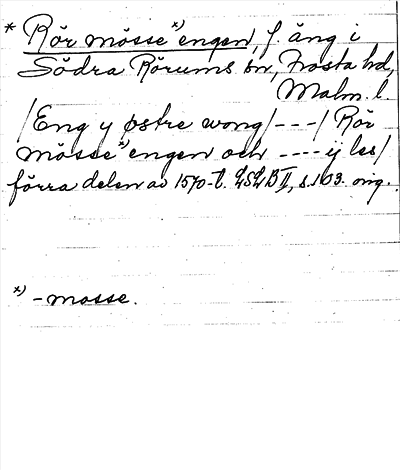 * Rör mösse x) engen, f. äng i
Södra Rörums sn, Frosta hd,
Malm. l.
/Eng y østre wong/ - - - / Rör
mösse x) engen och - - - - ij les/
förra delen av 1570-t. LSLB II, s. 103. orig.
x) -mosse.